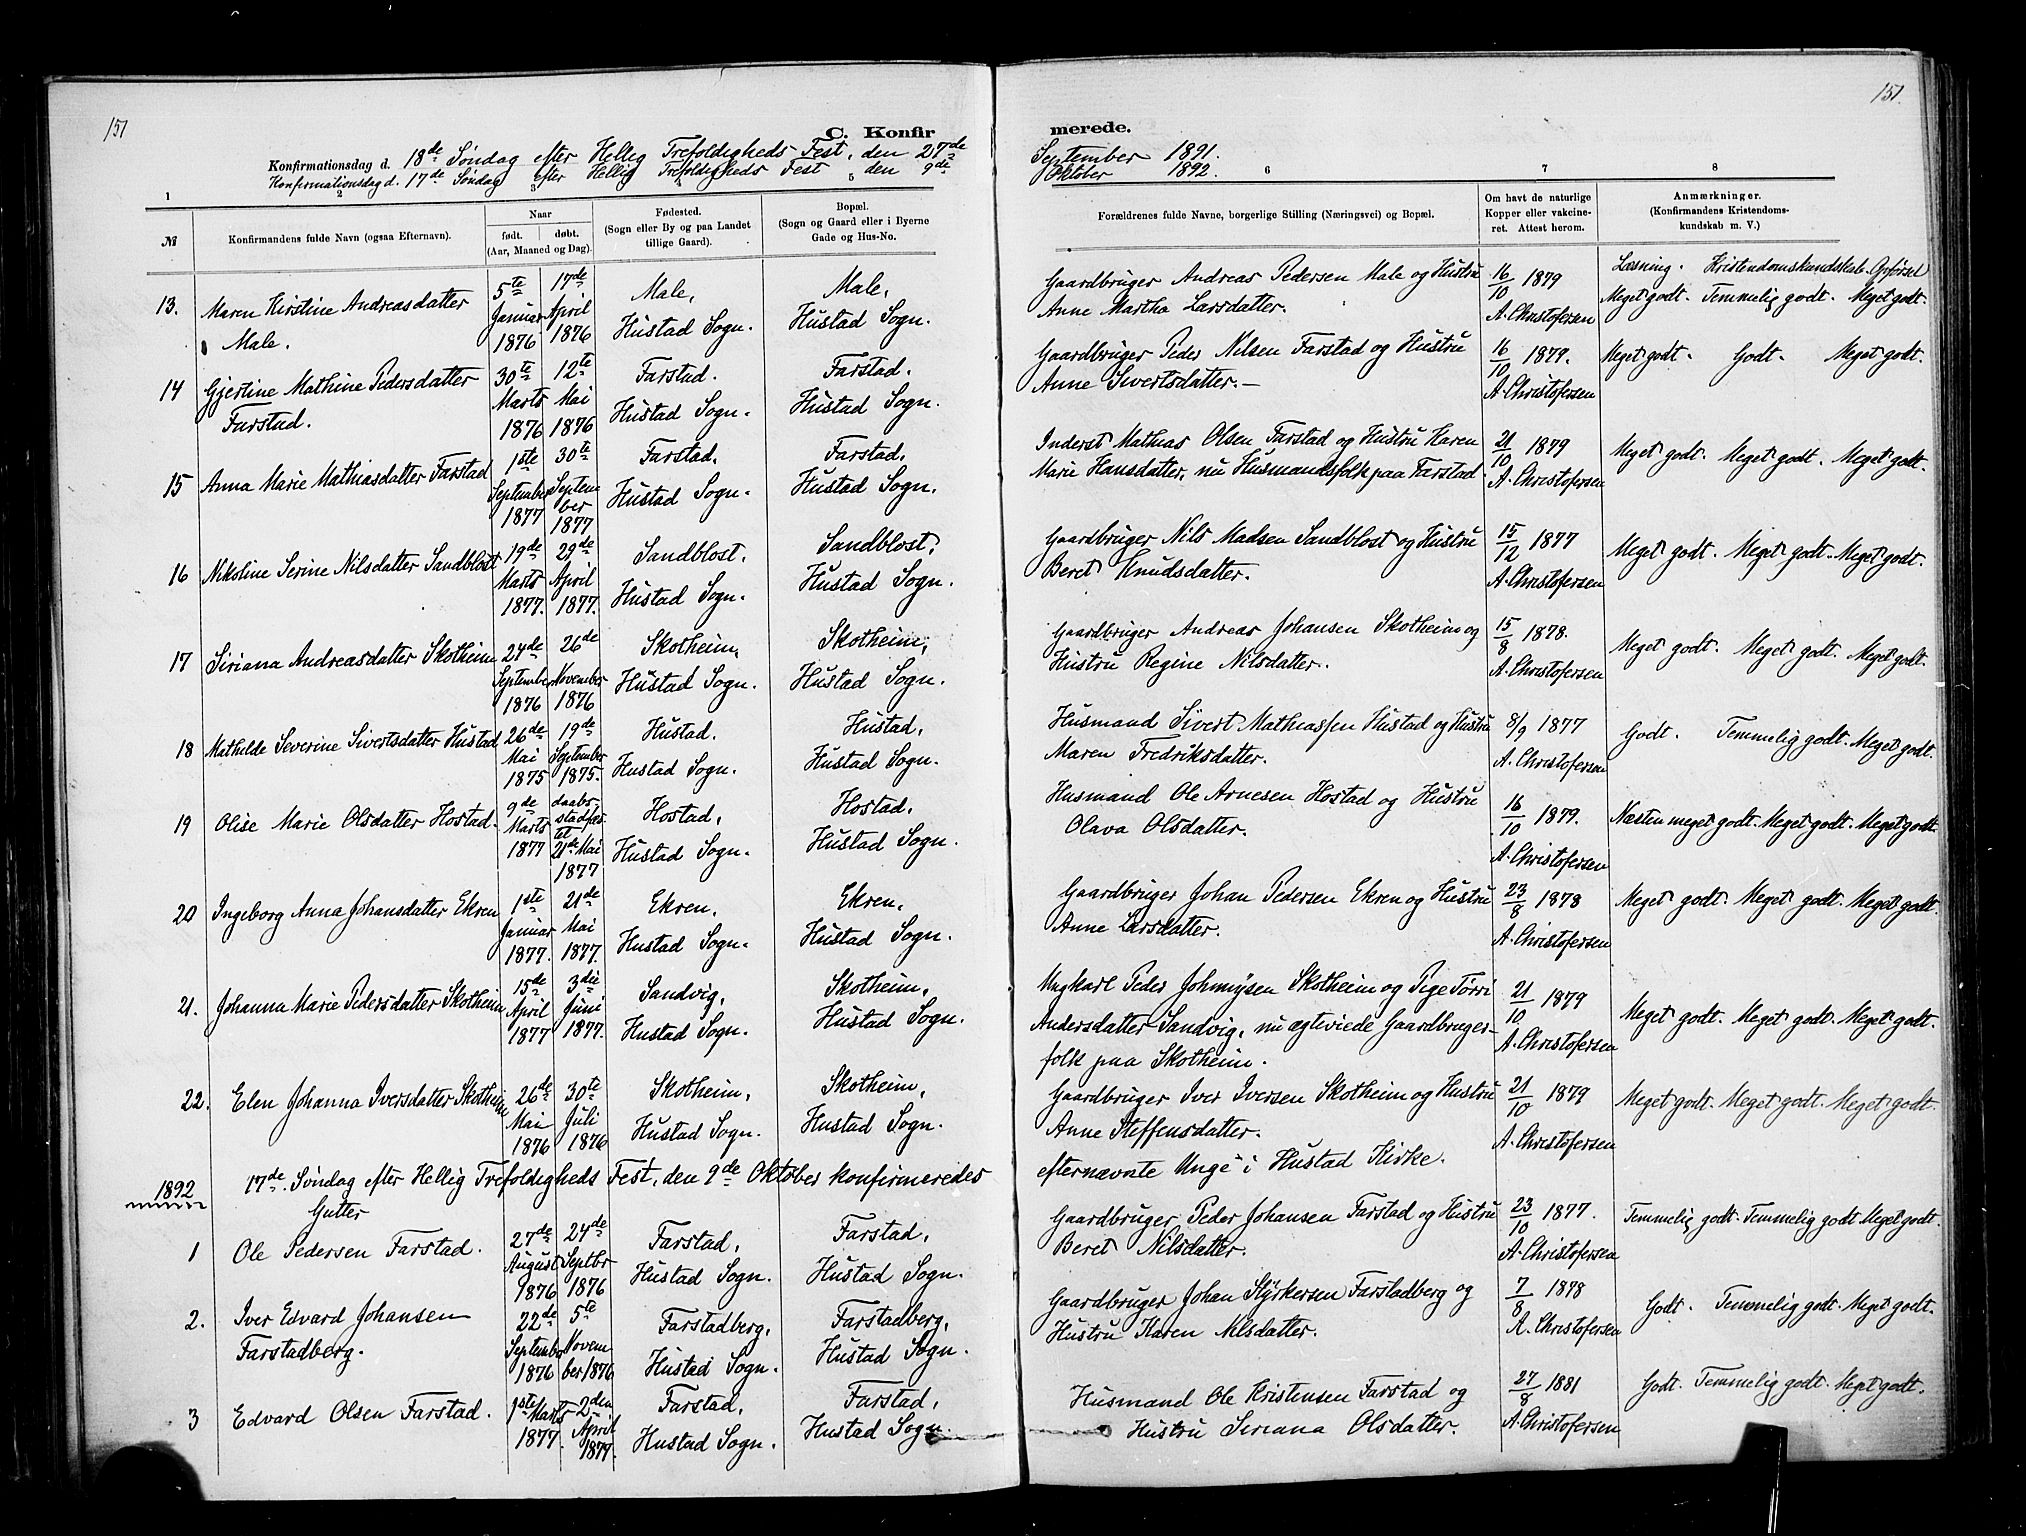 151
151.
C. Konfirmerede.
Konfirmationsdag d. 18de Søndag efter Hellig Trefoldigheds Fest, den 27de September 1891.
Konfirmationsdag d. 17de Søndag efter Hellig Trefoldigheds Fest, den 9de Oktober 1892.
1 2 3 4 5 6 7 8
№
Konfirmandens fulde Navn (ogsaa Efternavn).
Naar
født. døbt.
(Aar, Maaned og Dag).
Fødested.
(Sogn eller By og paa Landet
tillige Gaard).
Bopæl.
(Sogn og Gaard eller i Byerne
Gade og Hus-No.
Forældrenes fulde Navne, borgerlige Stilling (Næringsvei) og Bopæl.
Om havt de naturlige
Kopper eller vakcine-
ret. Attest herom.
Anmærkninger.
(Konfirmandens Kristendoms-
kundskab m. V.)
Læsning. Kristendomskundskab. Opførsel
13. Maren Kirstine Andreasdatter
Male.
5te Januar 1876
17de April 1876
Male, Hustad Sogn.
Male, Hustad Sogn.
Gaardbruger Andreas Pedersen Male og Hustru
Anne Martha Larsdatter.
16/10 1879 A. Christofersen
Meget godt. Temmelig godt. Meget godt.
14 Gjertine Mathine Pedersdatter
Farstad.
30te Marts 1876
12te Mai 1876
Farstad. Hustad Sogn.
Farstad. Hustad Sogn.
Gaardbruger Peder Nilsen Farstad og Hustru
Anne Sivertsdatter.—
16/10 1879. A. Christofersen
Meget godt. Godt. Meget godt.
15 Anna Marie Mathiasdatter Farstad
1ste September 1877
30te September 1877
Farstad, Hustad Sogn.
Farstad, Hustad Sogn.
Inderst Mathias Olsen Farstad og Hustru Karen
Marie Hansdatter, nu Husmandsfolk paa Farstad
21/10 1879 A. Christofersen
Meget godt. Meget godt. Meget godt.
16 Nikoline Serine Nilsdatter Sandblost
19de Marts 1877.
29de April 1877.
Sandblost. Hustad Sogn.
Sandblost, Hustad Sogn.
Gaardbruger Nils Madsen Sandblost og Hustru
Beret Knudsdatter.
15/12 1877 A. Christofersen
Meget godt. Meget godt. Meget godt.
17 Siriana Andreasdatter Skotheim
24de September 1876
26de November 1876
Skotheim, Hustad Sogn.
Skotheim, Hustad Sogn.
Gaardbruger Andreas Johansen Skotheim og
Hustru Regine Nilsdatter.
15/8 1878. A. Christofersen
Meget godt. Meget godt. Meget godt.
18 Mathilde Severine Sivertsdatter Hustad
26de Mai 1875
19de September 1875.
Hustad. Hustad Sogn.
Hustad, Hustad Sogn.
Husmand Sivert Mathiassen Hustad og Hustru
Maren Fredriksdatter.
8/9 1877 A. Christofersen
Godt. Temmelig godt. Meget godt.
19 Olise Marie Olsdatter Hostad.
9de Marts 1877
daabsstadfæstet 21de Mai 1877
Hostad, Hustad Sogn.
Hostad, Hustad Sogn.
Husmand Ole Arnesen Hostad og Hustru
Olava Olsdatter.
16/10 1879. A. Christofersen
Næsten meget godt. Meget godt. Meget godt.
20 Ingeborg Anna Johansdatter Ekren
1ste Januar 1877.
21de Mai 1877.
Ekren, Hustad Sogn.
Ekren, Hustad Sogn.
Gaardbruger Johan Pedersen Ekren og Hustru
Anne Larsdatter.
23/8 1878 A. Christofersen
Meget godt. Meget godt. Meget godt.
21. Johanna Marie Pedersdatter Skotheim
15de April 1877
3die Juni 1877.
Sandvig, Hustad Sogn.
Skotheim, Hustad Sogn.
Ungkarl Peder Skotheim og Pige
Andersdatter Sandvig, nu ægteviede Gaardbruger-
folk paa Skotheim.
21/10 1879 A. Christofersen
Meget godt. Meget godt. Meget godt.
22. Elen Johanna Iversdatter Skotheim
26de Mai 1876
30te Juli 1876
Skotheim, Hustad Sogn.
Skotheim, Hustad Sogn.
Gaardbruger Iver Iversen Skotheim og Hustru
Anne Steffensdatter.
21/10 1879 A. Christofersen
Meget godt. Meget godt. Meget godt.
1892 17de Søndag efter Hellig Trefoldigheds Fest, den 9de Oktober konfirmeredes efternævnte Unge i Hustad Kirke.
Gutter
1 Ole Pedersen Farstad.
27de August 1876
24de Septbr 1876
Farstad, Hustad Sogn.
Farstad, Hustad Sogn.
Gaardbruger Peder Johansen Farstad og Hustru
Beret Nilsdatter.
23/10 1877. A. Christofersen
Temmelig godt. Temmelig godt Meget godt.
2. Iver Edvard Johansen
Farstadberg.
22de September 1876
5te November 1876
Farstadberg, Hustad Sogn.
Farstadberg, Hustad Sogn.
Gaardbruger Johan Styrkersen Farstadberg og
Hustru Karen Nilsdatter.
7/8 1878 A. Christofersen
Godt. Temmelig godt. Meget godt.
3 Edvard Olsen Farstad.
1ste Marts 1877.
2den April 1877.
Farstad, Hustad Sogn.
Farstad, Hustad Sogn.
Husmand Ole Kristensen Farstad og
Hustru Seriana Olsdatter.
27/8 1881 A. Christofersen
Godt. Temmelig godt. Meget godt.